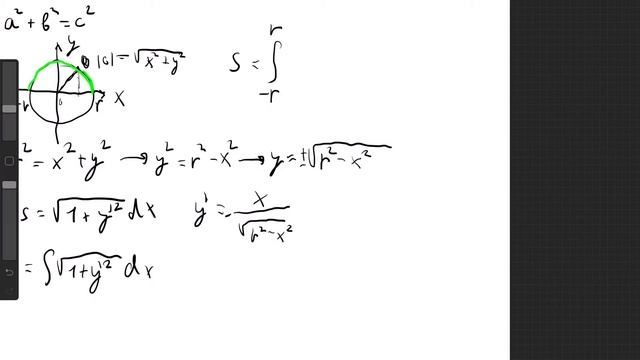 a² + b² = c²
y
|c| = √x² + y²
S = ∫ r -r
-r 0 r x
² = x² + y² → y² = r² - x² → y = ±√r² - x²
s = √1 + y'² dx y' = - x / √r² - x²
= ∫√1 + y'² dx